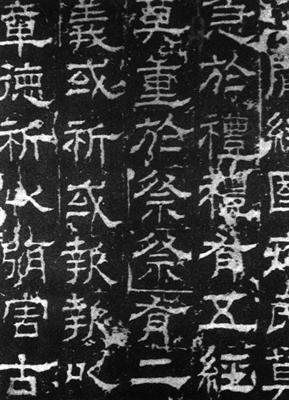 聞經國序民莫
急於禮禮有五經
莫重於祭祭有二
義或祈或報報以
章德祈以弭害古